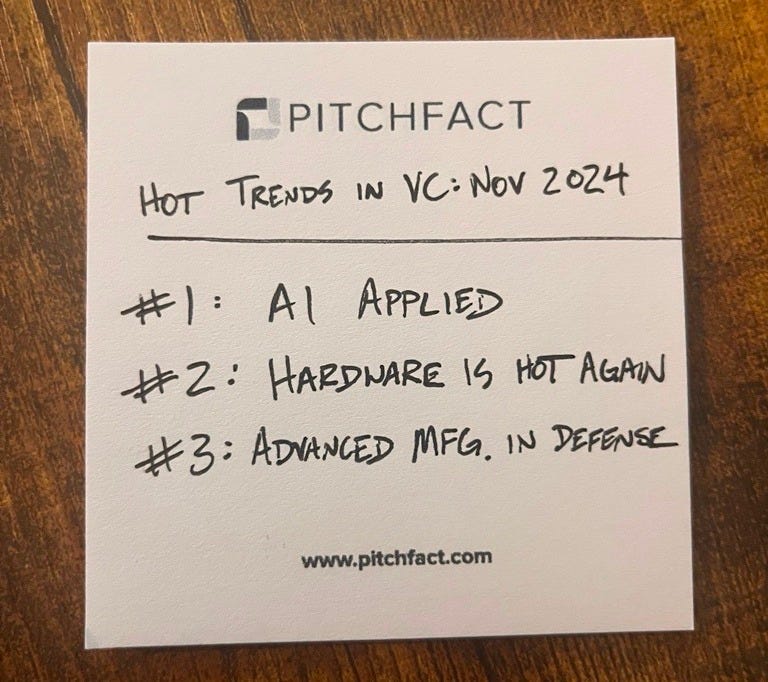 PITCHFACT
HOT TRENDS IN VC: NOV 2024
#1: AI APPLIED
#2: HARDWARE IS HOT AGAIN
#3: ADVANCED MFG. IN DEFENSE
www.pitchfact.com